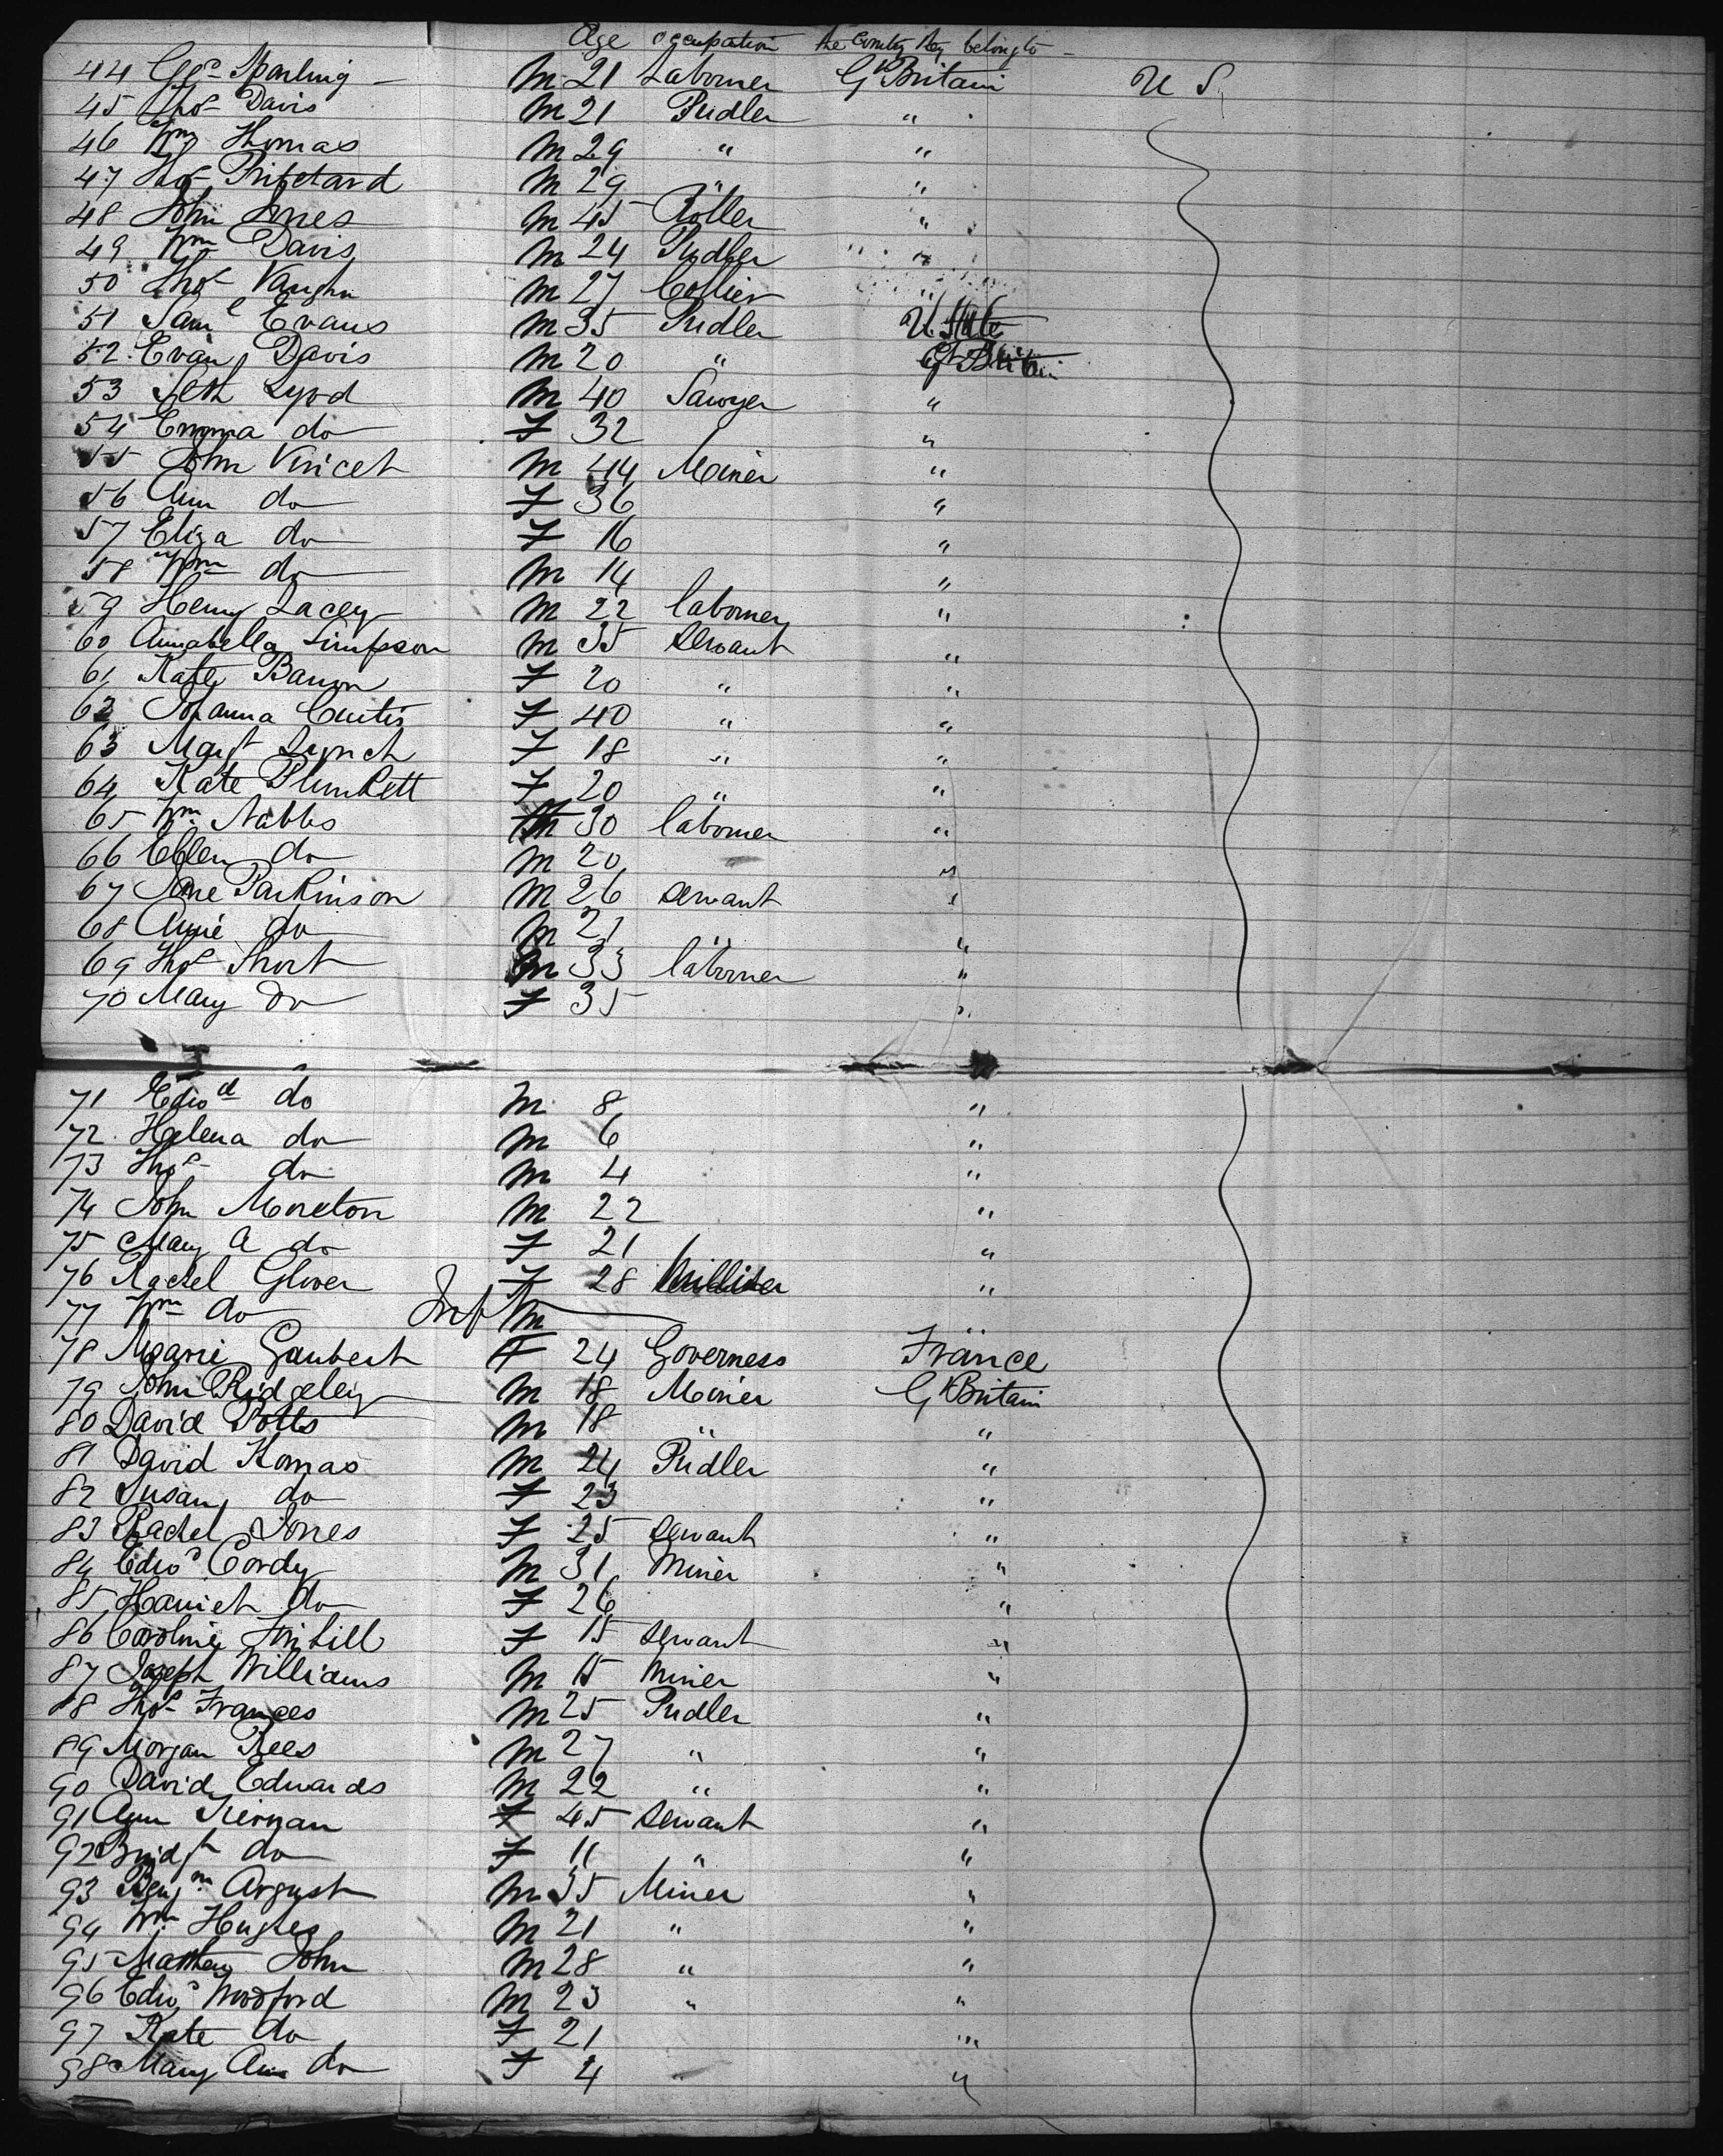 Age occupation the Country they belong to
44 Geo Sparling M 21 Labourer Gt Britain U S
45 Thos Davis M 21 Pudler "
46 Wm Thomas M 29 " "
47 Thos Pritchard M 29 " "
48 John Jones M 45 Roller "
49 Wm Davis M 24 Pudler "
50 Thos Vaughn M 27 Collier "
51 Saml Evans M 35 Pudler U State
52 Evan Davis M 20 " Gt Britain
53 Seth Lyod M 40 Sawyer "
54 Emma do F 32 "
55 John Vincet M 44 Miner "
56 Ann do F 36 "
57 Eliza do F 16 "
58 Wm do M 14 "
59 Henry Lacey M 22 labourer "
60 Annabella Simpson M 35 servant "
61 Kate Baron F 20 " "
62 Johanna Curtis F 40 " "
63 Margt Lynch F 18 " "
64 Kate Plunkett F 20 " "
65 Wm Nabbs M 30 labourer "
66 Ellen do M 20 "
67 Jane Parkinson M 26 servant "
68 Annie do M 21 " "
69 Thos Short M 33 labourer "
70 Mary do F 35 "
71 Edwd do M 8 "
72 Helena do M 6 "
73 Thos do M 4 "
74 John Moreton M 22 "
75 Mary A do F 21 "
76 Rachel Glover F 28 Milliner "
77 Wm do Inf M "
78 Marie Gaubert F 24 Governess France
79 John Ridgeley M 18 Miner Gt Britain
80 David Potts M 18 " "
81 David Thomas M 24 Pudler "
82 Susan do F 23 "
83 Rachel Jones F 25 servant "
84 Edwd Cordy M 31 Miner "
85 Harriet do F 26 "
86 Caroline F 15 servant "
87 Joseph Williams M 15 Miner "
88 Thos Frances M 25 Pudler "
89 Morgan Rees M 27 " "
90 David Edwards M 22 " "
91 Ann Kiernan F 45 servant "
92 Bridgt do F 11 " "
93 Benjm Argust M 35 Miner "
94 Wm Hughes M 21 " "
95 Mathew John M 28 " "
96 Edwd Woodford M 23 " "
97 Kate do F 21 "
98 Mary Ann do F 4 " "